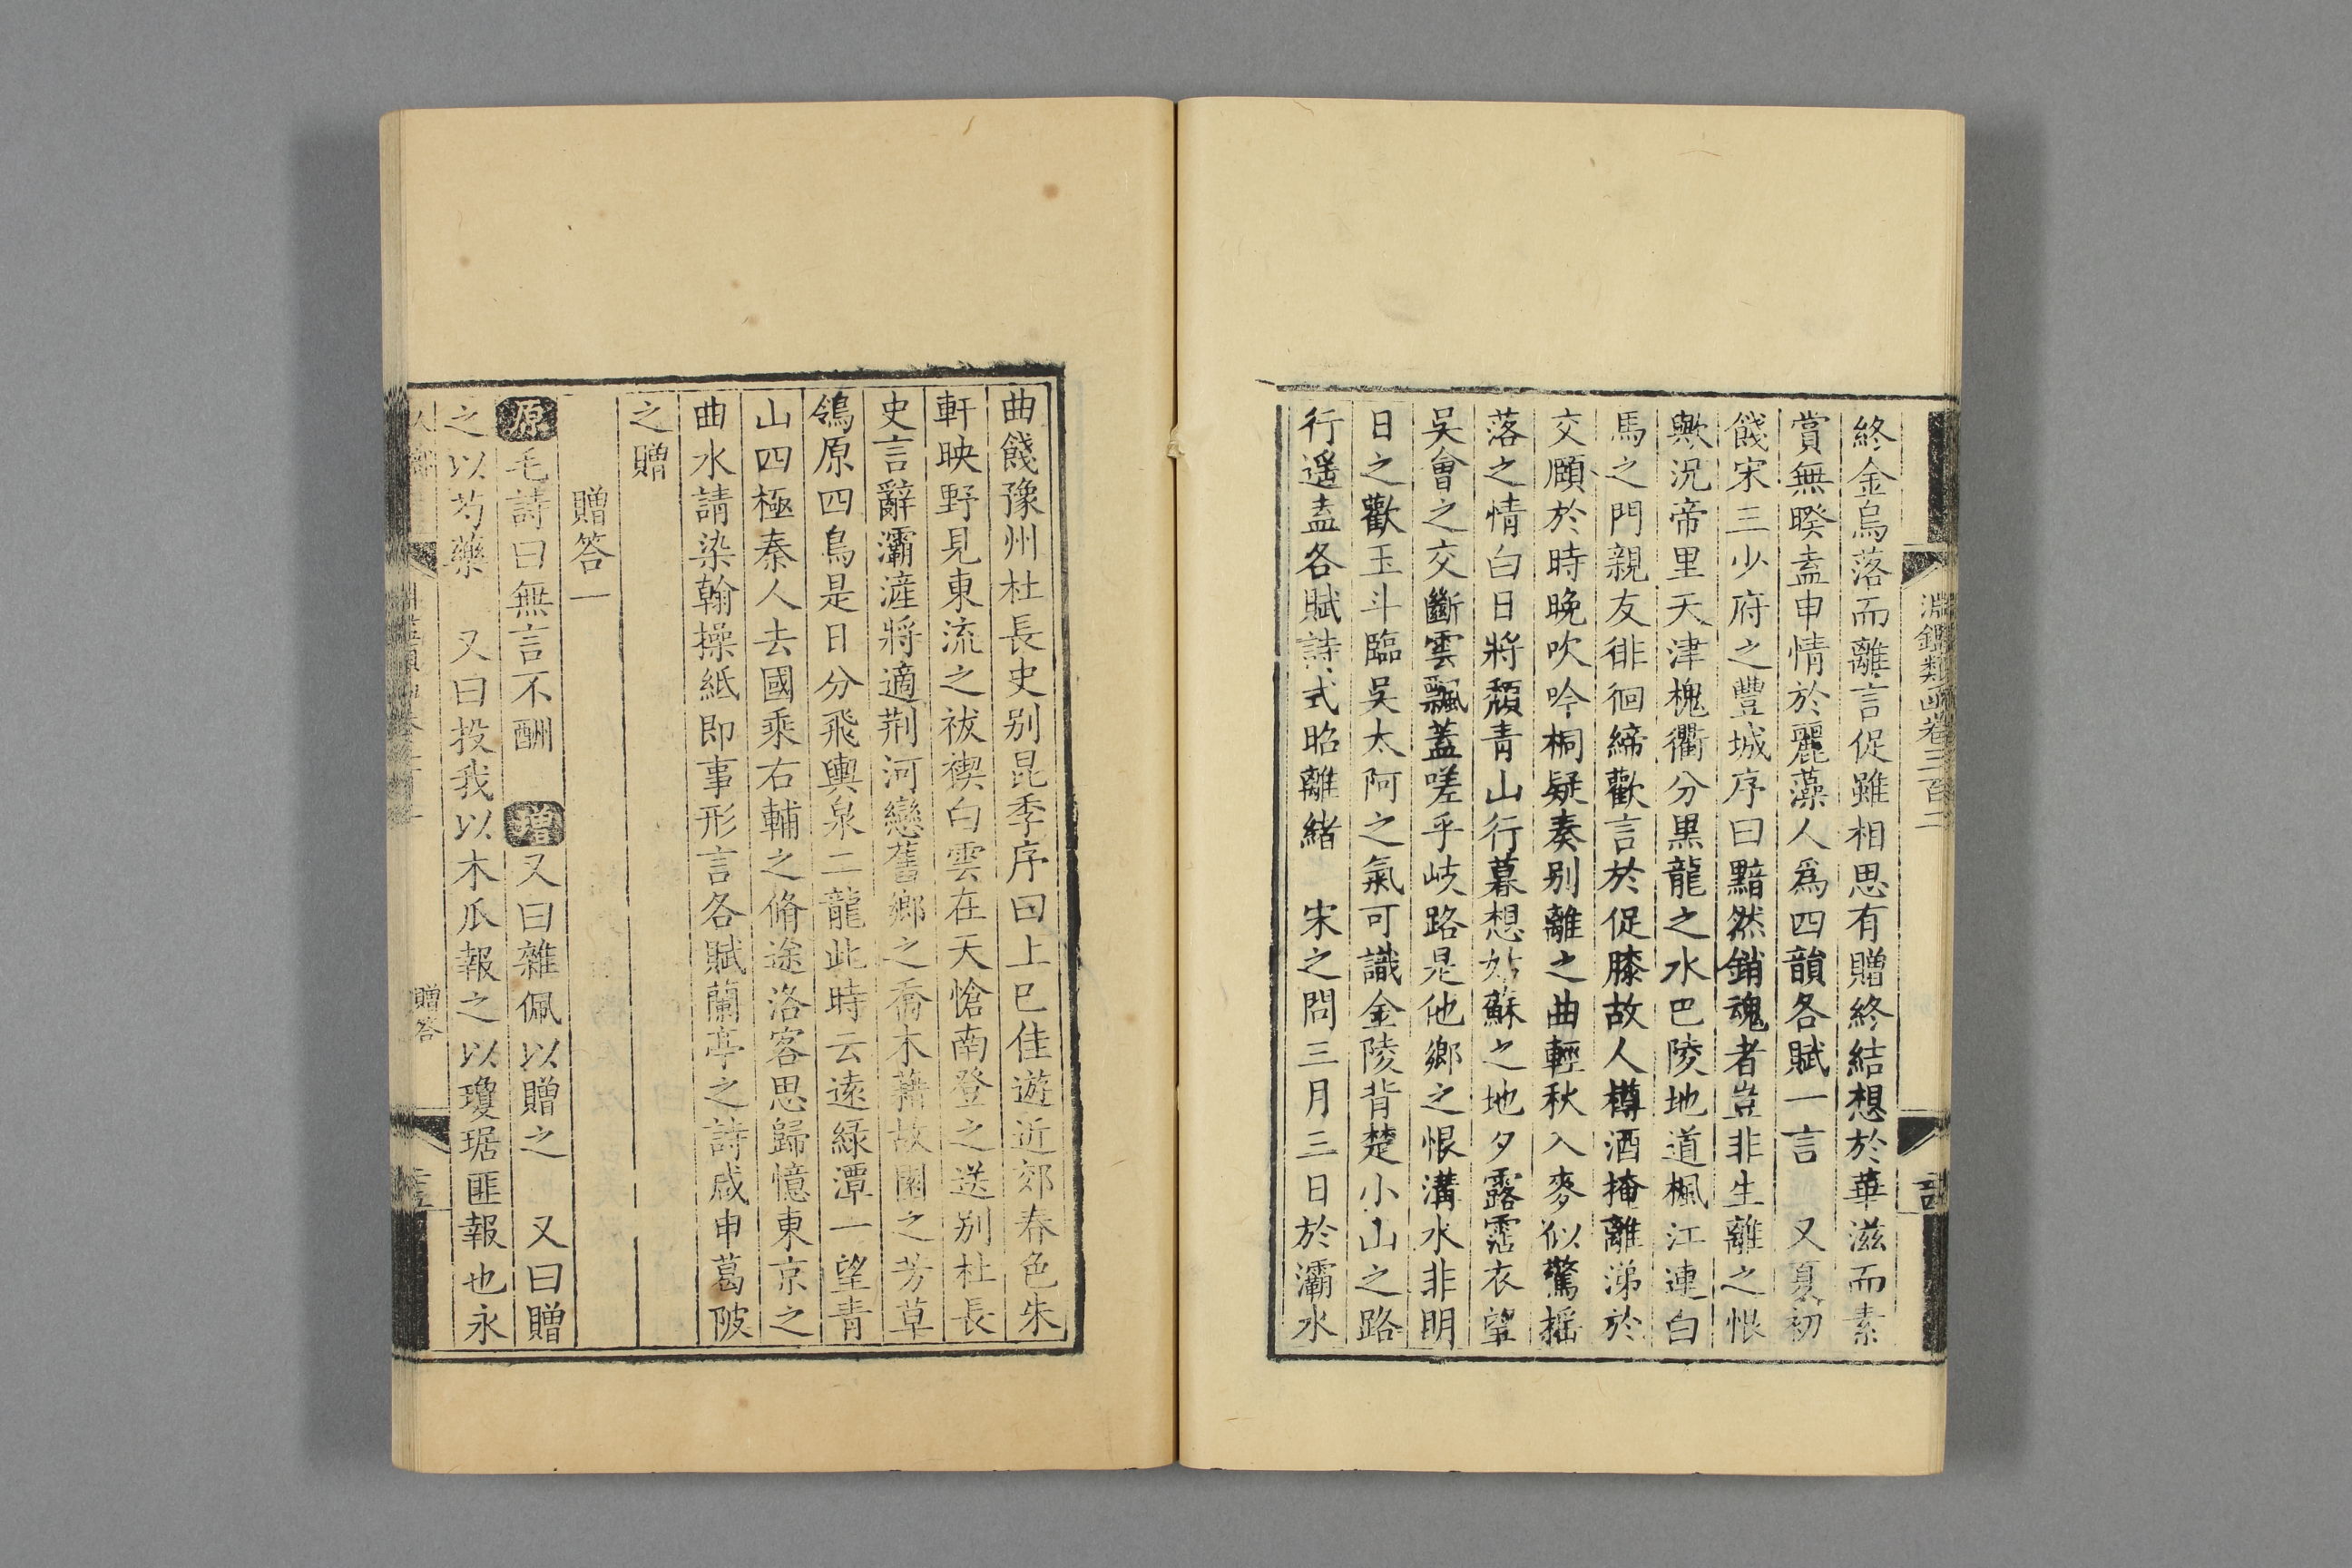 淵鑑類函卷三百二
終金烏落而離言促雖相思有贈終結想於華滋而素
賞無暌盍申情於麗藻人爲四韻各賦一言　又夏初
餞宋三少府之豐城序曰黯然銷魂者豈非生離之恨
歟況帝里天津槐衢分黑龍之水巴陵地道楓江連白
馬之門親友徘徊締歡言於促膝故人樽酒掩離涕於
交頤於時晚吹吟桐疑奏別離之曲輕秋入麥似驚搖
落之情白日將頹青山行暮想姑蘇之地夕露霑衣望
吳會之交斷雲飄蓋嗟乎岐路是他鄉之恨溝水非明
日之歡玉斗臨吳太阿之氣可識金陵背楚小山之路
行遥盍各賦詩式昭離緒　宋之問三月三日於灞水
曲餞豫州杜長史别昆季序曰上巳佳遊近郊春色朱
軒映野見東流之祓禊白雲在天愴南登之送别杜長
史言辭灞滻將適荆河戀舊鄉之喬木藉故園之芳草
鴒原四鳥是日分飛輿泉二龍此時云遠緑潭一望青
山四極秦人去國乘右輔之脩途洛客思歸憶東京之
曲水請染翰操紙即事形言各賦蘭亭之詩咸申葛陂
之贈
贈答一
原毛詩曰無言不酬　增又曰雜佩以贈之　又曰贈
之以芍藥　又曰投我以木瓜報之以瓊琚匪報也永
贈答